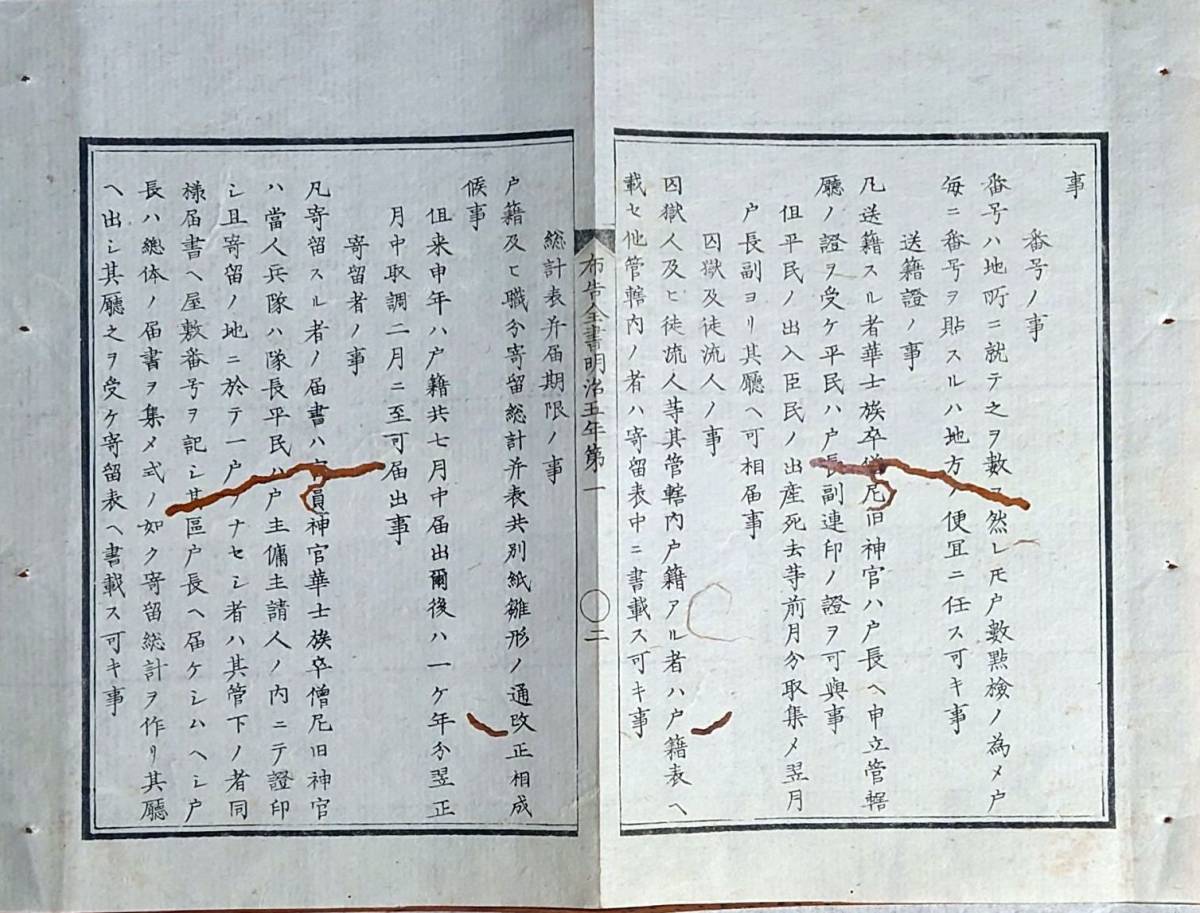 事
番号ノ事
番号ハ地所ニ就テ之ヲ數フ然レ𪜈戸數點檢ノ為メ戸
毎ニ番号ヲ貼スルハ地方ノ便冝ニ任ス可キ事
送籍證ノ事
凡送籍スル者華士族卒僧尼旧神官ハ戸長ヘ申立管轄
廳ノ證ヲ受ケ平民ハ戸長副連印ノ證ヲ可與事
但平民ノ出入臣民ノ出産死去等前月分取集メ翌月
戸長副ヨリ其廳ヘ可相届事
囚獄及徒流人ノ事
囚獄人及ヒ徒流人等其管轄内戸籍アル者ハ戸籍表ヘ
載セ他管轄内ノ者ハ寄留表中ニ書載ス可キ事
布告全書明治五年第一 〇二
総計表并届期限ノ事
戸籍及ヒ職分寄留総計并表共別紙雛形ノ通改正相成
候事
但来申年ハ戸籍共七月中届出爾後ハ一ケ年分翌正
月中取調二月ニ至可届出事
寄留者ノ事
凡寄留スル者ノ届書ハ員神官華士族卒僧尼旧神官
ハ當人兵隊ハ隊長平民ハ戸主傭主請人ノ内ニテ證印
シ且寄留ノ地ニ於テ一戸ヲナセシ者ハ其管下ノ者同
様届書ヘ屋敷番号ヲ記シ其區戸長ヘ届ケシムヘシ戸
長ハ總体ノ届書ヲ集メ式ノ如ク寄留総計ヲ作リ其廳
ヘ出シ其廳之ヲ受ケ寄留表ヘ書載ス可キ事